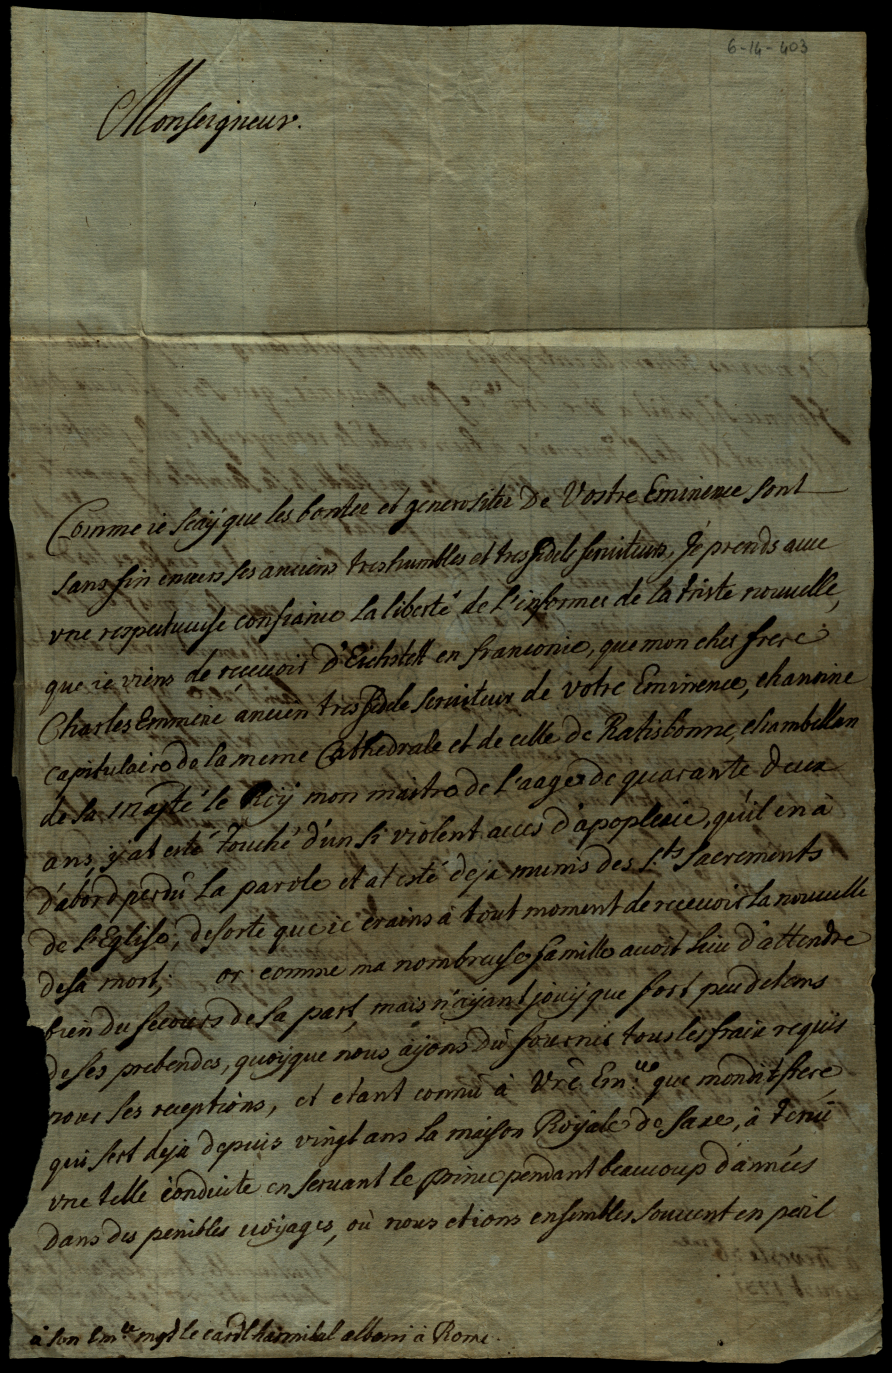 6-14-403
Monseigneur.
Comme ie scaÿ que les bontez et generositez De Vostre Eminence sont
sans fin envers ses anciens tres humbles et tres fidels serviteurs, Je prends avec
vne respectueuse confiance La liberté de L'informer de la triste nouvelle,
que ie viens de recevoir d'Eichstett en franconie, que mon cher frere
Charles Emmeric ancien tres fidele serviteur de votre Eminence, chanoine
capitulaire de la meme Cathedrale et de celle de Ratisbonne, chambellan
de sa Majté Le Roÿ mon maitre de L'aage de quarante deux
ans, y at esté touché d'un si violent acces d'apoplexie, qu'il en à
d'abord perdû La parole et at esté deja munis des Sts Sacrements
de L'Eglise, desorte que ie crains à tout moment de recevoir La nouvelle
de sa mort, or comme ma nombreuse famille avoit lieu d'attendre
bien du secours de sa part, mais n'aÿant jouÿ que fort peu de tems
de ses prebendes, quoÿque nous aÿons Dû fournir tous les fraix requis
pour ses receptions, et etant connû à Vre Emce que mondit frere,
qui sert deja depuis vingt ans La maison Roÿale de Saxe, à tenû
vne telle conduite en servant le prince pendant beaucoup d'années
dans des penibles voÿages, où nous etions ensembles souvent en peril
à son Emce mgr le cardl hannibal albani à Rome.